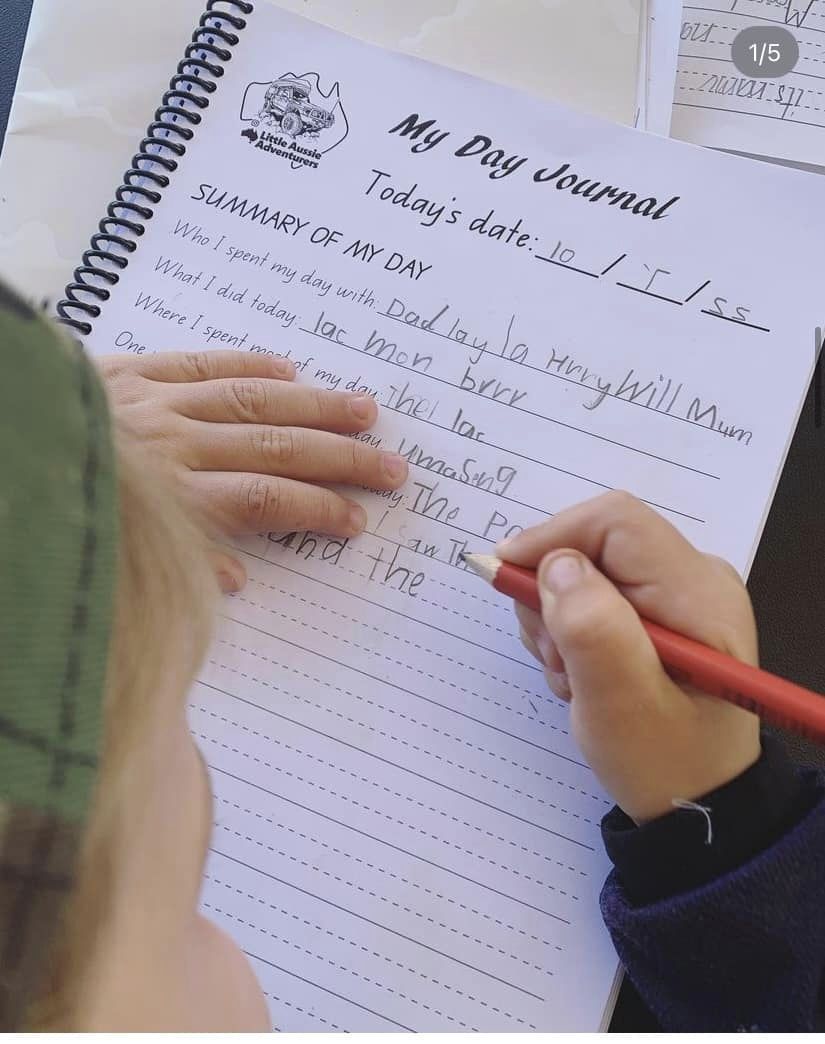 1/5
Little Aussie
Adventurers
My Day Journal
Today's date: 10 / 5 / SS
SUMMARY OF MY DAY
Who I spent my day with: Dad lay la Hrry Will Mum
What I did today: lac mon brrr
Where I spent most of my day: The lac
One
day: umaSeng
today: The Po
I saw Th
and the